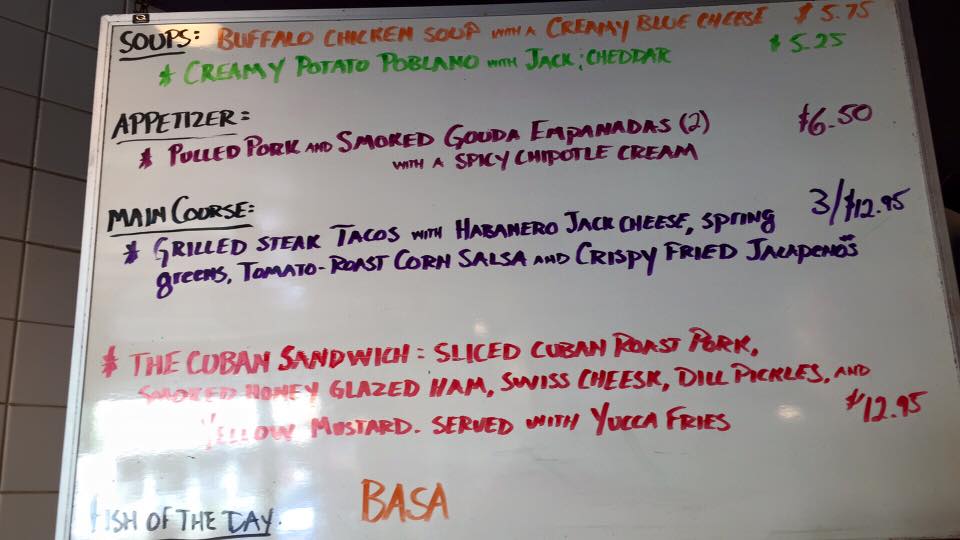 SOUPS: BUFFALO CHICKEN SOUP WITH A CREAMY BLUE CHEESE $5.75
* CREAMY POTATO POBLANO WITH JACK; CHEDDAR $5.25
APPETIZER:
* PULLED PORK AND SMOKED GOUDA EMPANADAS (2) $6.50
WITH A SPICY CHIPOTLE CREAM
MAIN COURSE: 3/$12.95
* GRILLED STEAK TACOS WITH HABANERO JACK CHEESE, SPRING
greens, TOMATO-ROAST CORN SALSA AND CRISPY FRIED JALAPENOS
* THE CUBAN SANDWICH: SLICED CUBAN ROAST PORK,
SMOKED HONEY GLAZED HAM, SWISS CHEESE, DILL PICKLES, AND
YELLOW MUSTARD. SERVED WITH YUCCA FRIES $12.95
FISH OF THE DAY. BASA